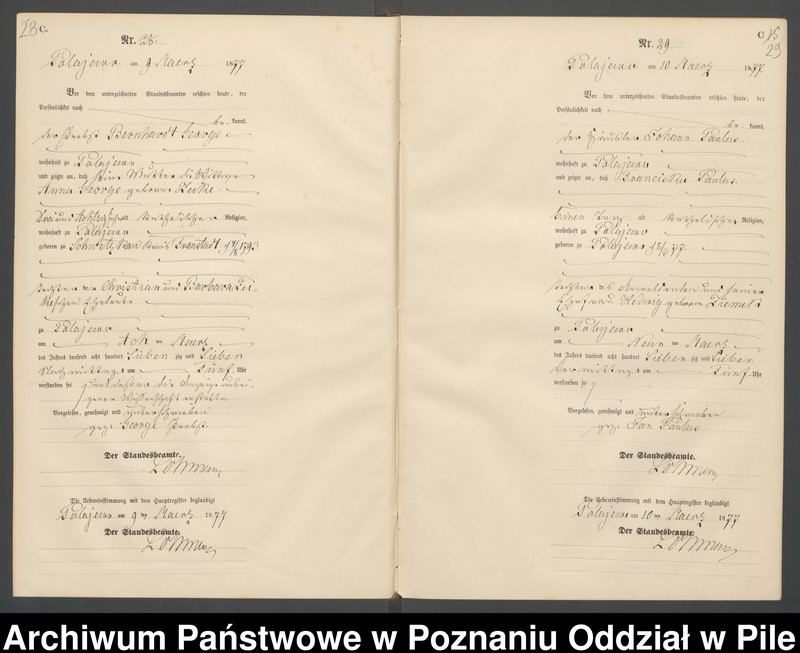 28 C.
Nr. 28.
Polajewo am 9 Maerz 1877
Vor dem unterzeichneten Standesbeamten erschien heute, der
Persönlichkeit nach
be kannt,
der Probst Bernhardt George
wohnhaft zu Polajewo
und zeigte an, daß seine Mutter die Wittwe
Anna George geborne
Drei und Achtzig Jahre alt katholischer Religion,
wohnhaft zu Polajewo
geboren zu Kreis Fraustadt 1793
Tochter der Christian und Barbara
Eheleute
zu Polajewo
am Acht ten Maerz
des Jahres tausend acht hundert Sieben zig und Sieben
Nachmittags um Fünf Uhr
verstorben sei
die Anzeige aus ei-
gener Wissenschaft
Vorgelesen, genehmigt und unterschrieben
gez. George Probst
Der Standesbeamte.
Die Uebereinstimmung mit dem Hauptregister beglaubigt
Polajewo am 9 ten Maerz 1877
Der Standesbeamte.
C. 15
29
Nr. 29
Polajewo am 10 Maerz 1877.
Vor dem unterzeichneten Standesbeamten erschien heute, der
Persönlichkeit nach
be kannt,
der Häusler Johann Paulus
wohnhaft zu Polajewo
und zeigte an, daß Franciska Paulus
einen Tag alt katholischer Religion,
wohnhaft zu Polajewo
geboren zu Polajewo
Tochter des Anmeldenden und seiner
Ehefrau Hedwig geborne Ziemek
zu Polajewo
am Neun ten Maerz
des Jahres tausend acht hundert Sieben zig und Sieben
Vormittags um Fünf Uhr
verstorben sei
Vorgelesen, genehmigt und unterschrieben
gez. Jan Paulus
Der Standesbeamte.
Die Uebereinstimmung mit dem Hauptregister beglaubigt
Polajewo am 10 ten Maerz 1877
Der Standesbeamte.
Archiwum Państwowe w Poznaniu Oddział w Pile